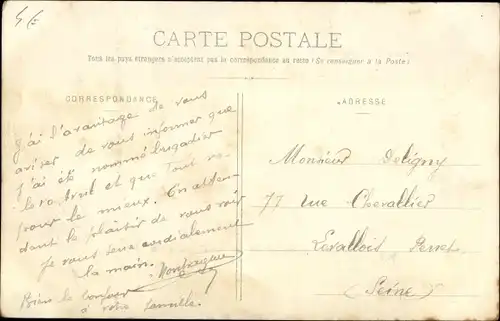 CARTE POSTALE
Tous les pays étrangers n'acceptent pas la correspondance au recto (Se renseigner à la Poste)
CORRESPONDANCE
ADRESSE
J'ai l'avantage de vous
aviser de vous informer que
j'ai été nommé brigadier
et que tout va
pour le mieux. En atten-
dant le plaisir de vous voir
Je vous serre cordialement
la main.
Bien le bonjour
à votre famille.
Monsieur Deligny
77 rue Chevallier
Levallois Perret
(Seine)